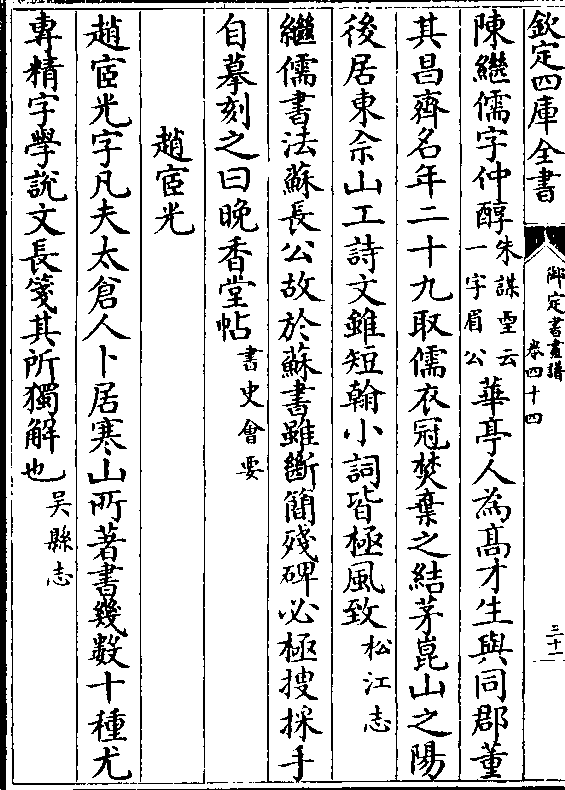 欽定四庫全書
御定書畫譜
卷四十四
三十二
陳繼儒字仲醇朱謀垔云一字眉公華亭人為髙才生與同郡董
其昌齊名年二十九取儒衣冠焚棄之結茅崑山之陽
後居東佘山工詩文雖短翰小詞皆極風致松江志
繼儒書法蘇長公故於蘇書雖斷簡殘碑必極搜採手
自摹刻之曰晚香堂帖書史會要
趙宧光
趙宧光字凡夫太倉人卜居寒山所著書幾数十種尤
専精字學説文長箋其所獨解也吴縣志